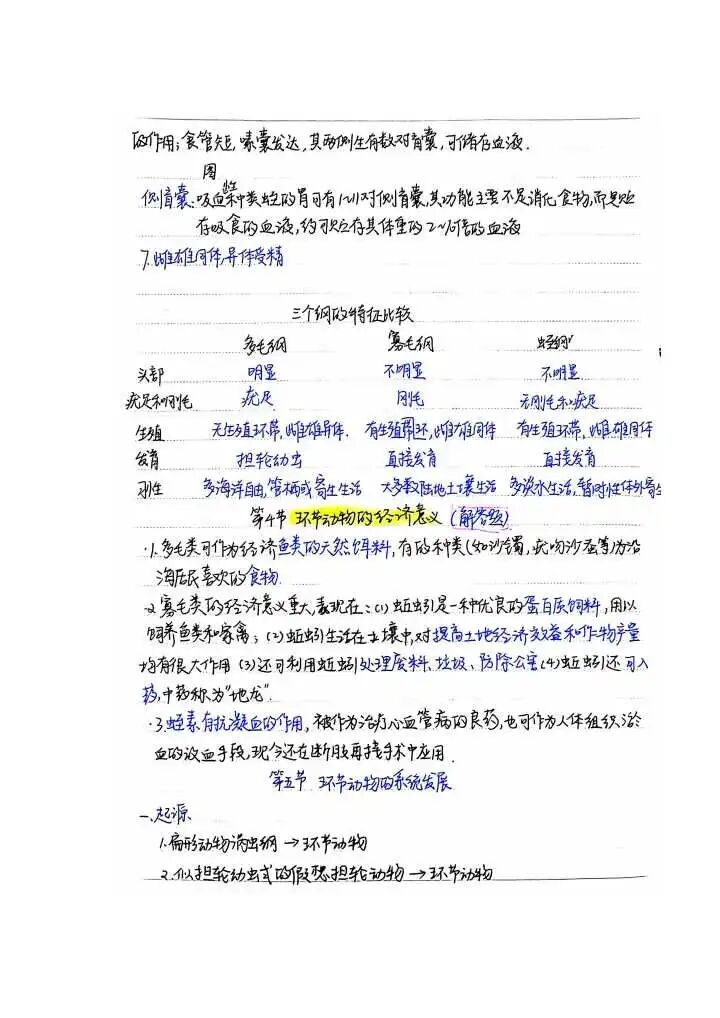 的作用;食管短,嗉囊发达,其两侧生有数对盲囊,可储存血液.
图
侧盲囊:吸血性种类蛭的胃可有1~11对侧盲囊,其功能主要不是消化食物,而是贮
存吸食的血液,约可贮存其体重的2~10倍的血液
7.雌雄同体,异体受精
三个纲的特征比较
多毛纲 寡毛纲 蛭纲
头部 明显 不明显 不明显
疣足和刚毛 疣足 刚毛 无刚毛和疣足
生殖 无生殖环带,雌雄异体. 有生殖环,雌雄同体 有生殖环带,雌雄同体
发育 担轮幼虫 直接发育 直接发育
习性 多海洋自由,管栖或寄生生活 大多数陆地土壤生活 多淡水生活,暂时性体外寄生
第4节 环节动物的经济意义(解答题)
·1.多毛类可作为经济鱼类的天然饵料,有的种类(如沙蠋,疣吻沙蚕等)为沿
海居民喜欢的食物.
·2.寡毛类的经济意义重大,表现在:(1)蚯蚓是一种优良的蛋白质饲料,用以
饲养鱼类和家禽;(2)蚯蚓生活在土壤中,对提高土地经济效益和作物产量
均有很大作用 (3)还可利用蚯蚓处理废料、垃圾、防除公害(4)蚯蚓还可入
药,中药称为"地龙".
·3.蛭素有抗凝血的作用,被作为治疗心血管病的良药,也可作为人体组织淤
血的吸血手段,现今还在断肢再接手术中应用.
第五节 环节动物的系统发展
一.起源
1.扁形动物涡虫纲→环节动物
2.似担轮幼虫式的假想担轮动物→环节动物